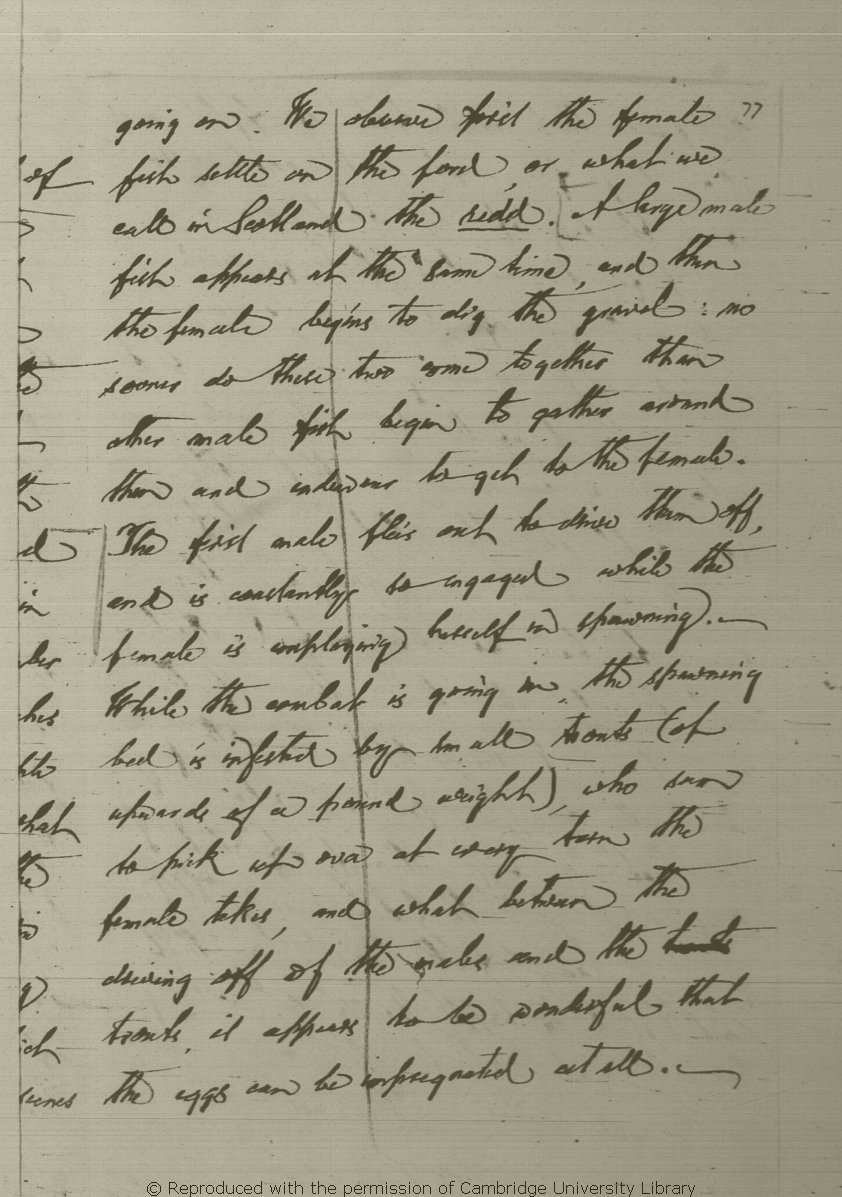 77
going on. We observe first the female
fish settle on the ford, or what we
call in Scotland the redd. A large male
fish appears at the same time, and then
the female begins to dig the gravel: no
sooner do these two come together than
other male fish begin to gather around
them and endeavour to get to the female.
The first male flies out to drive them off,
and is constantly so engaged while the
female is employing herself in spawning).—
While the combat is going on, the spawning
bed is infested by small trouts (of
upwards of a pound weight), who swim
to pick up ova at every turn the
female takes, and what between the
driving off of the males and the
trouts, it appears to be wonderful that
the eggs can be impregnated at all.—
of
in
hat
© Reproduced with the permission of Cambridge University Library